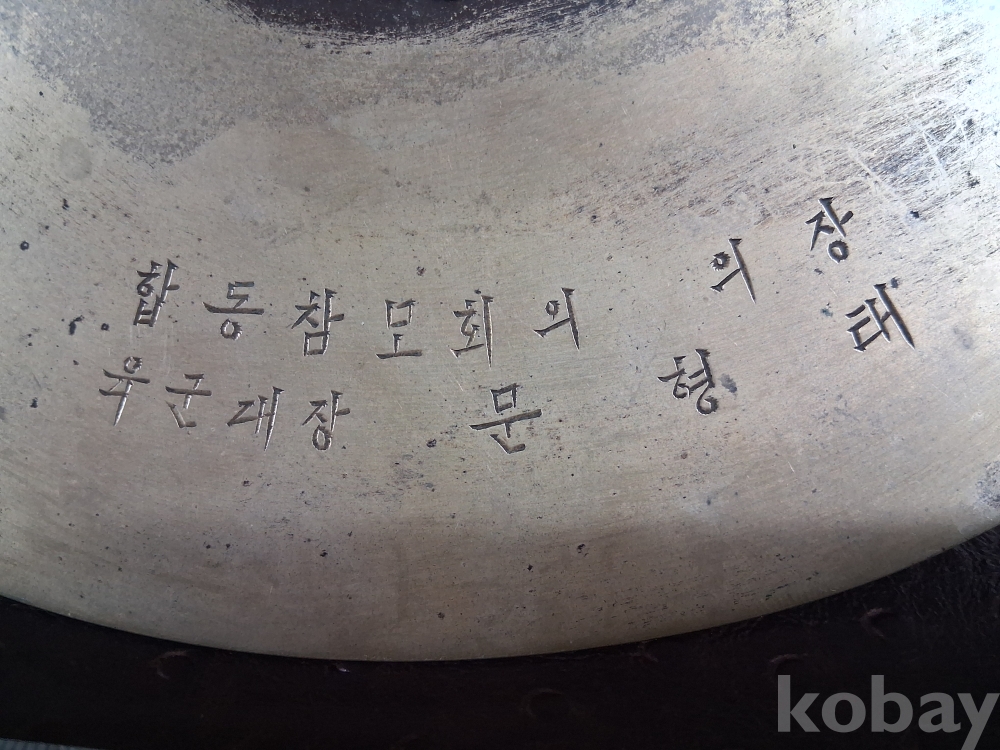 합동참모회의 의장
육군대장 문형태
kobay